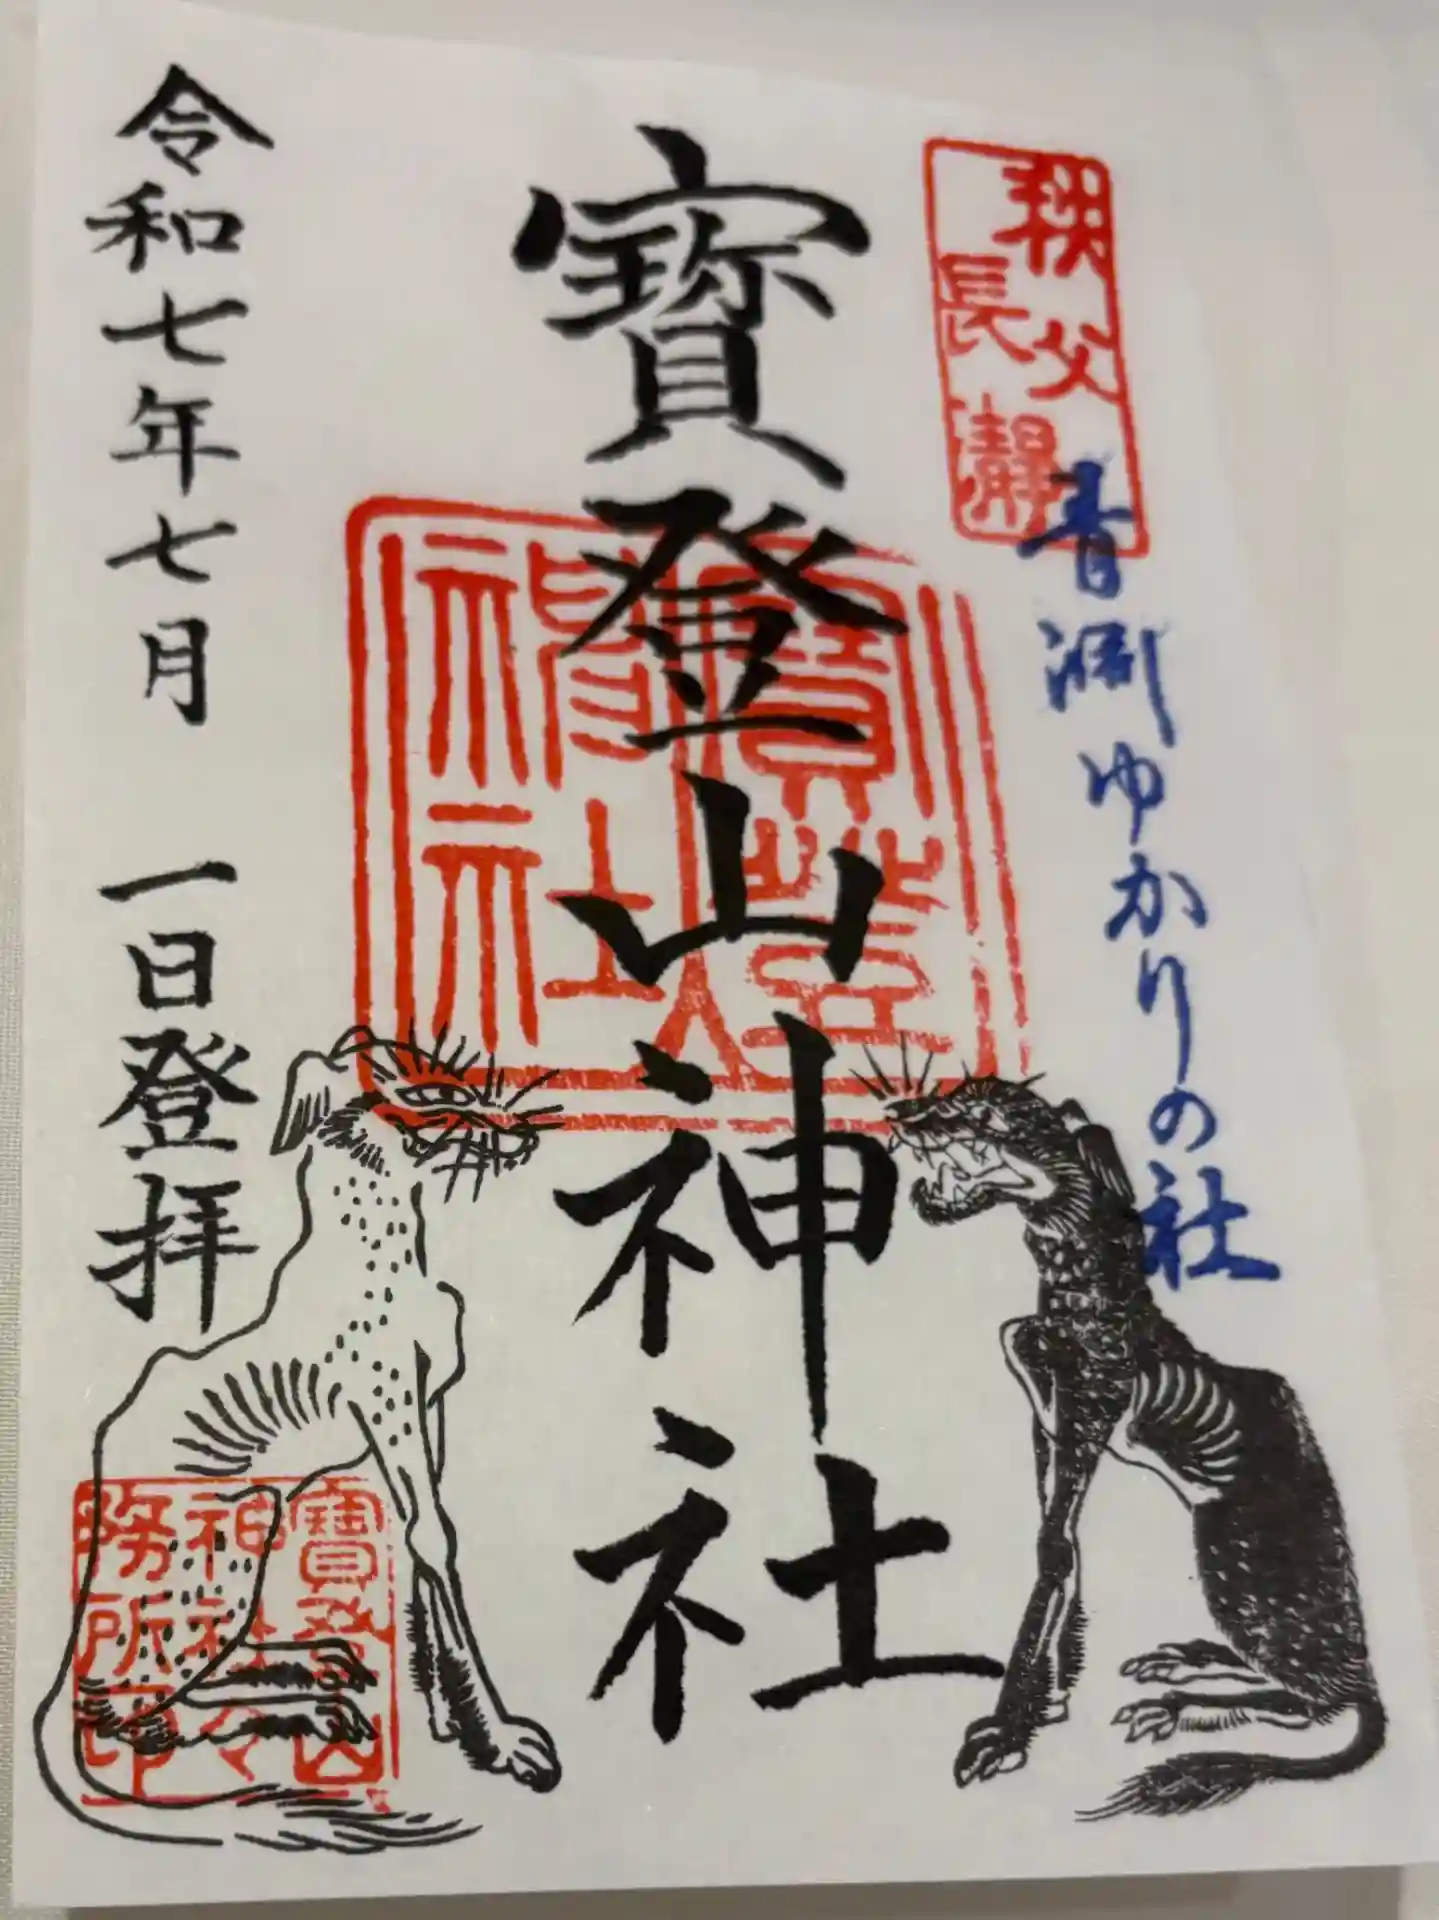 秩父
長瀞
青淵ゆかりの社
寳登山神社
寳登山
神社
令和七年七月 一日登拝
寳登山
神社々
務所印